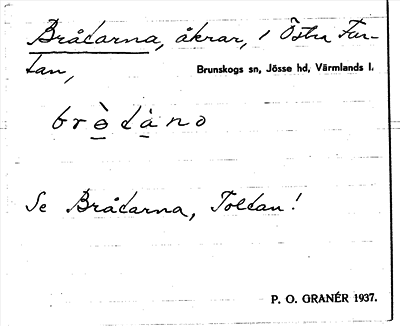 Bråtarna, åkrar, i Östra Fur-
tan,
Brunskogs sn, Jösse hd, Värmlands l.
bròtàno
Se Bråtarna, Toltan!
P. O. GRANÉR 1937.